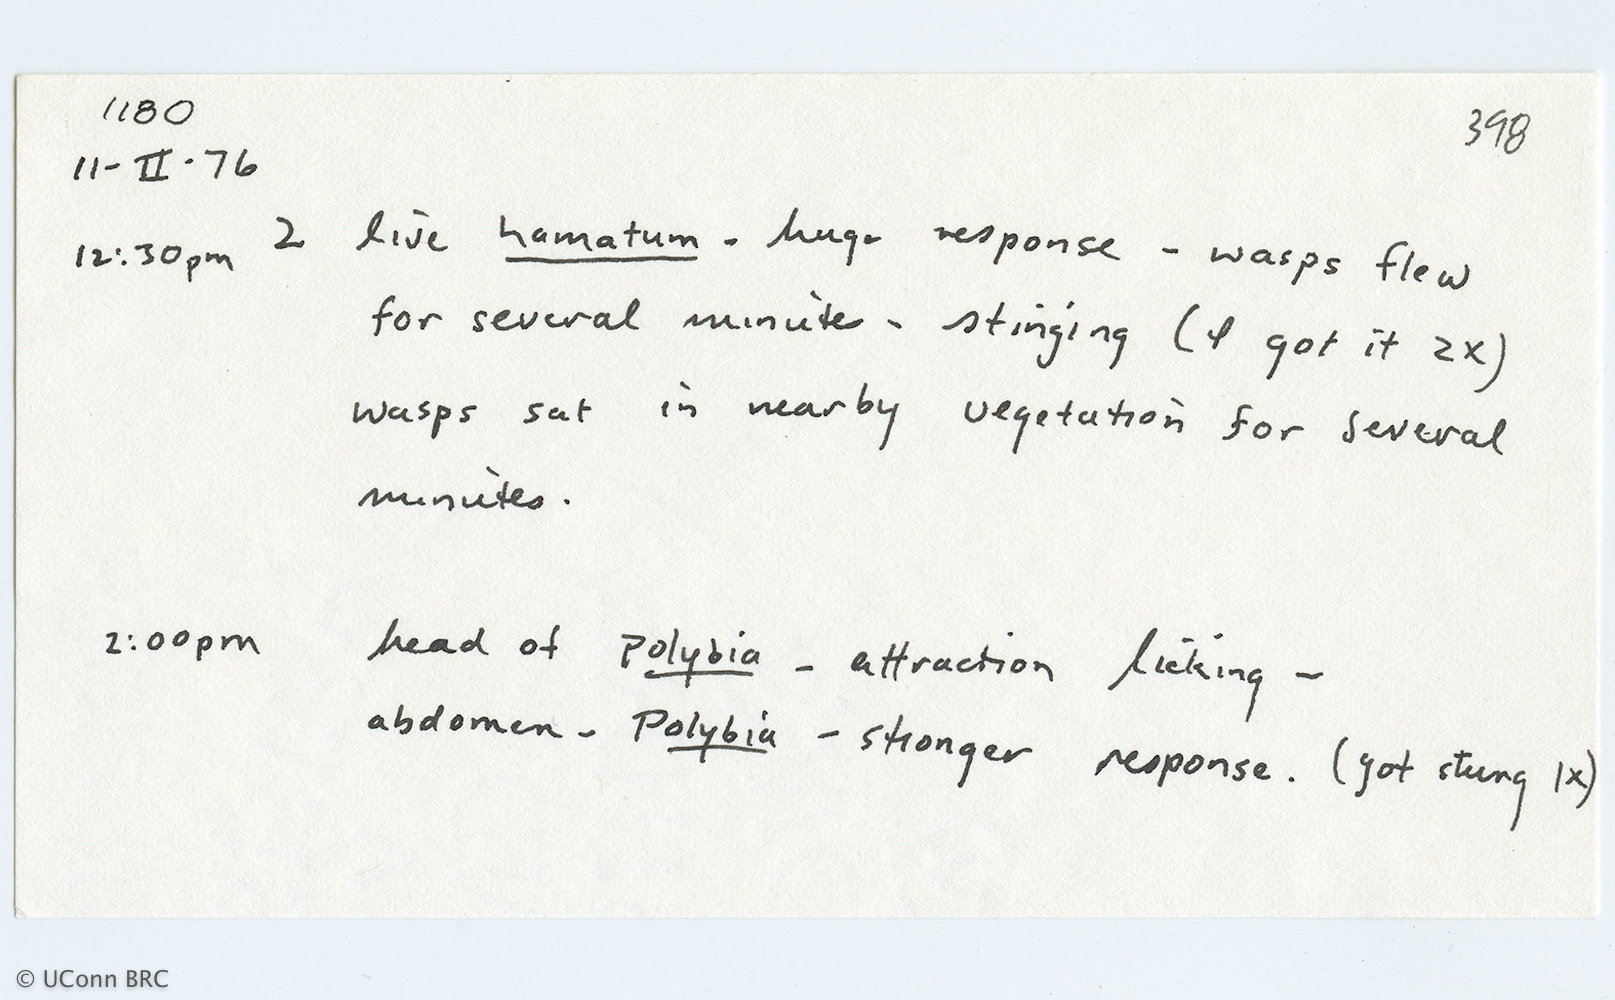 1180
398
11-II-76
12:30pm 2 live hamatum - huge response - wasps flew
for several minutes - stinging (I got it 2x)
wasps sat in nearby vegetation for several
minutes.
2:00pm head of Polybia - attraction licking -
abdomen - Polybia - stronger response. (got stung 1x)
© UConn BRC